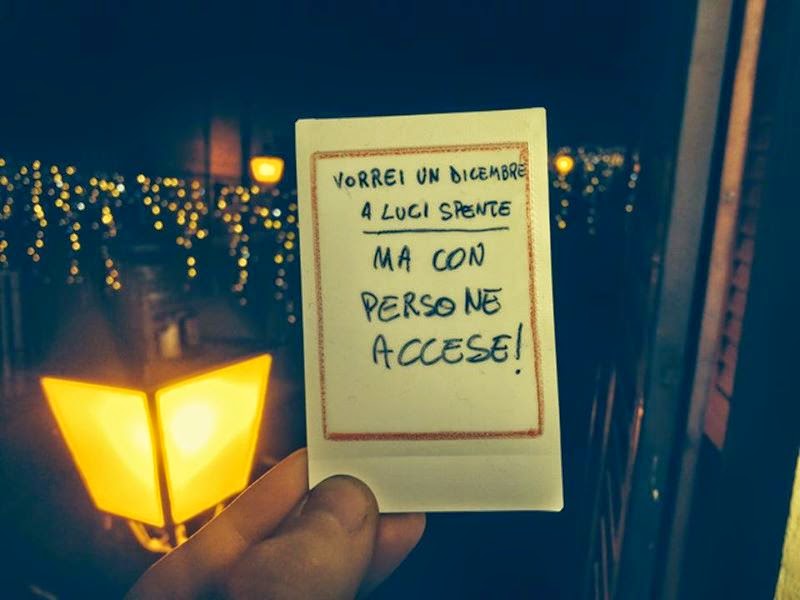 VORREI UN DICEMBRE
A LUCI SPENTE
MA CON
PERSONE
ACCESE!